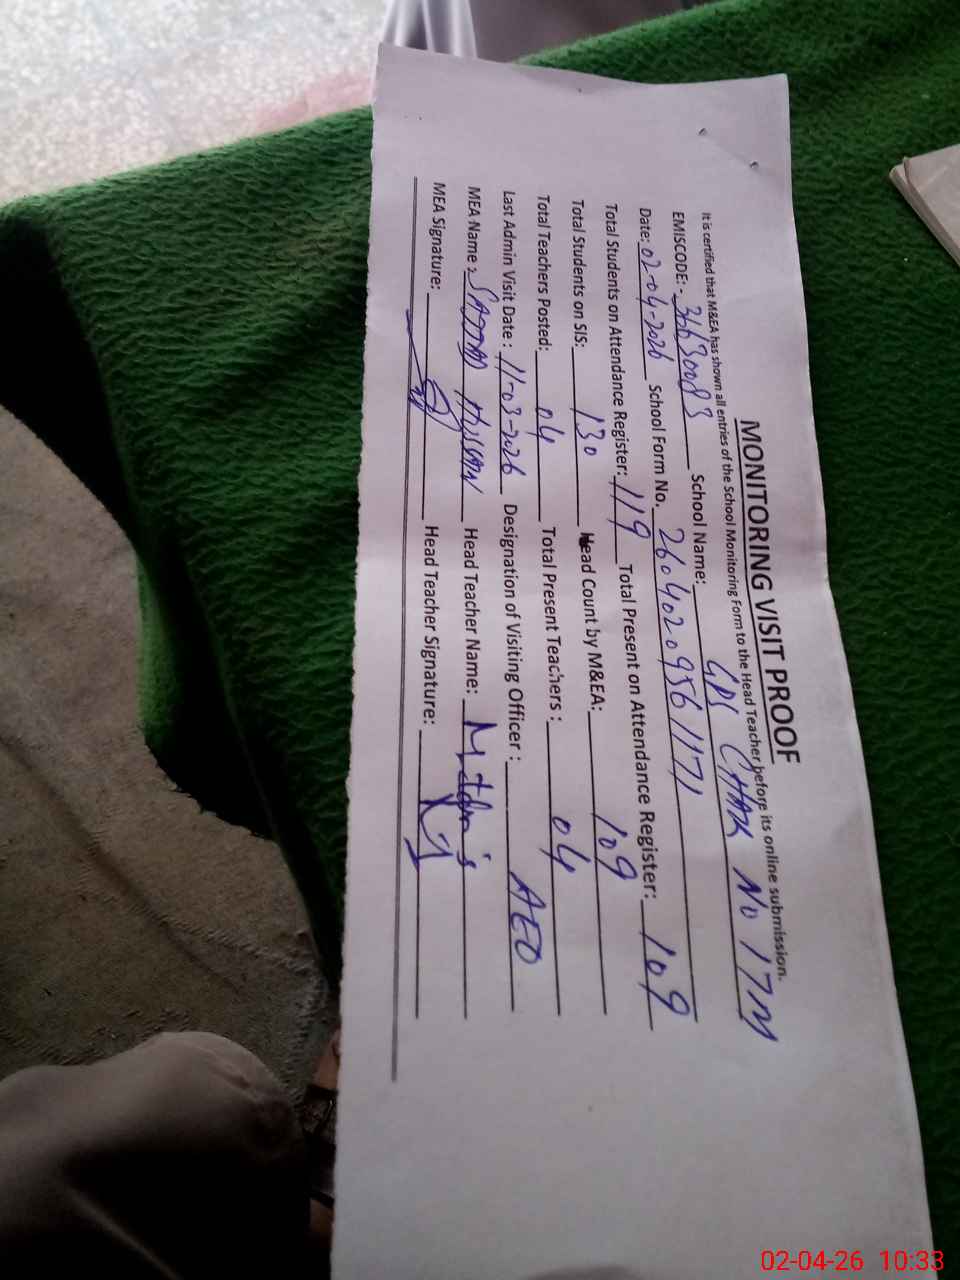 MONITORING VISIT PROOF
It is certified that M&EA has shown all entries of the School Monitoring Form to the Head Teacher before its online submission.
EMISCODE: - 36630083 School Name: GPS CHAK No 17M
Date: 02-04-2026 School Form No. 26040209561171
Total Students on Attendance Register: 119 Total Present on Attendance Register: 109
Total Students on SIS: 130 Head Count by M&EA: 109
Total Teachers Posted: 04 Total Present Teachers : 04
Last Admin Visit Date : 11-03-2026 Designation of Visiting Officer : AEO
MEA Name : SAJJAD HUSSAIN Head Teacher Name:
MEA Signature: Head Teacher Signature:
02-04-26 10:33